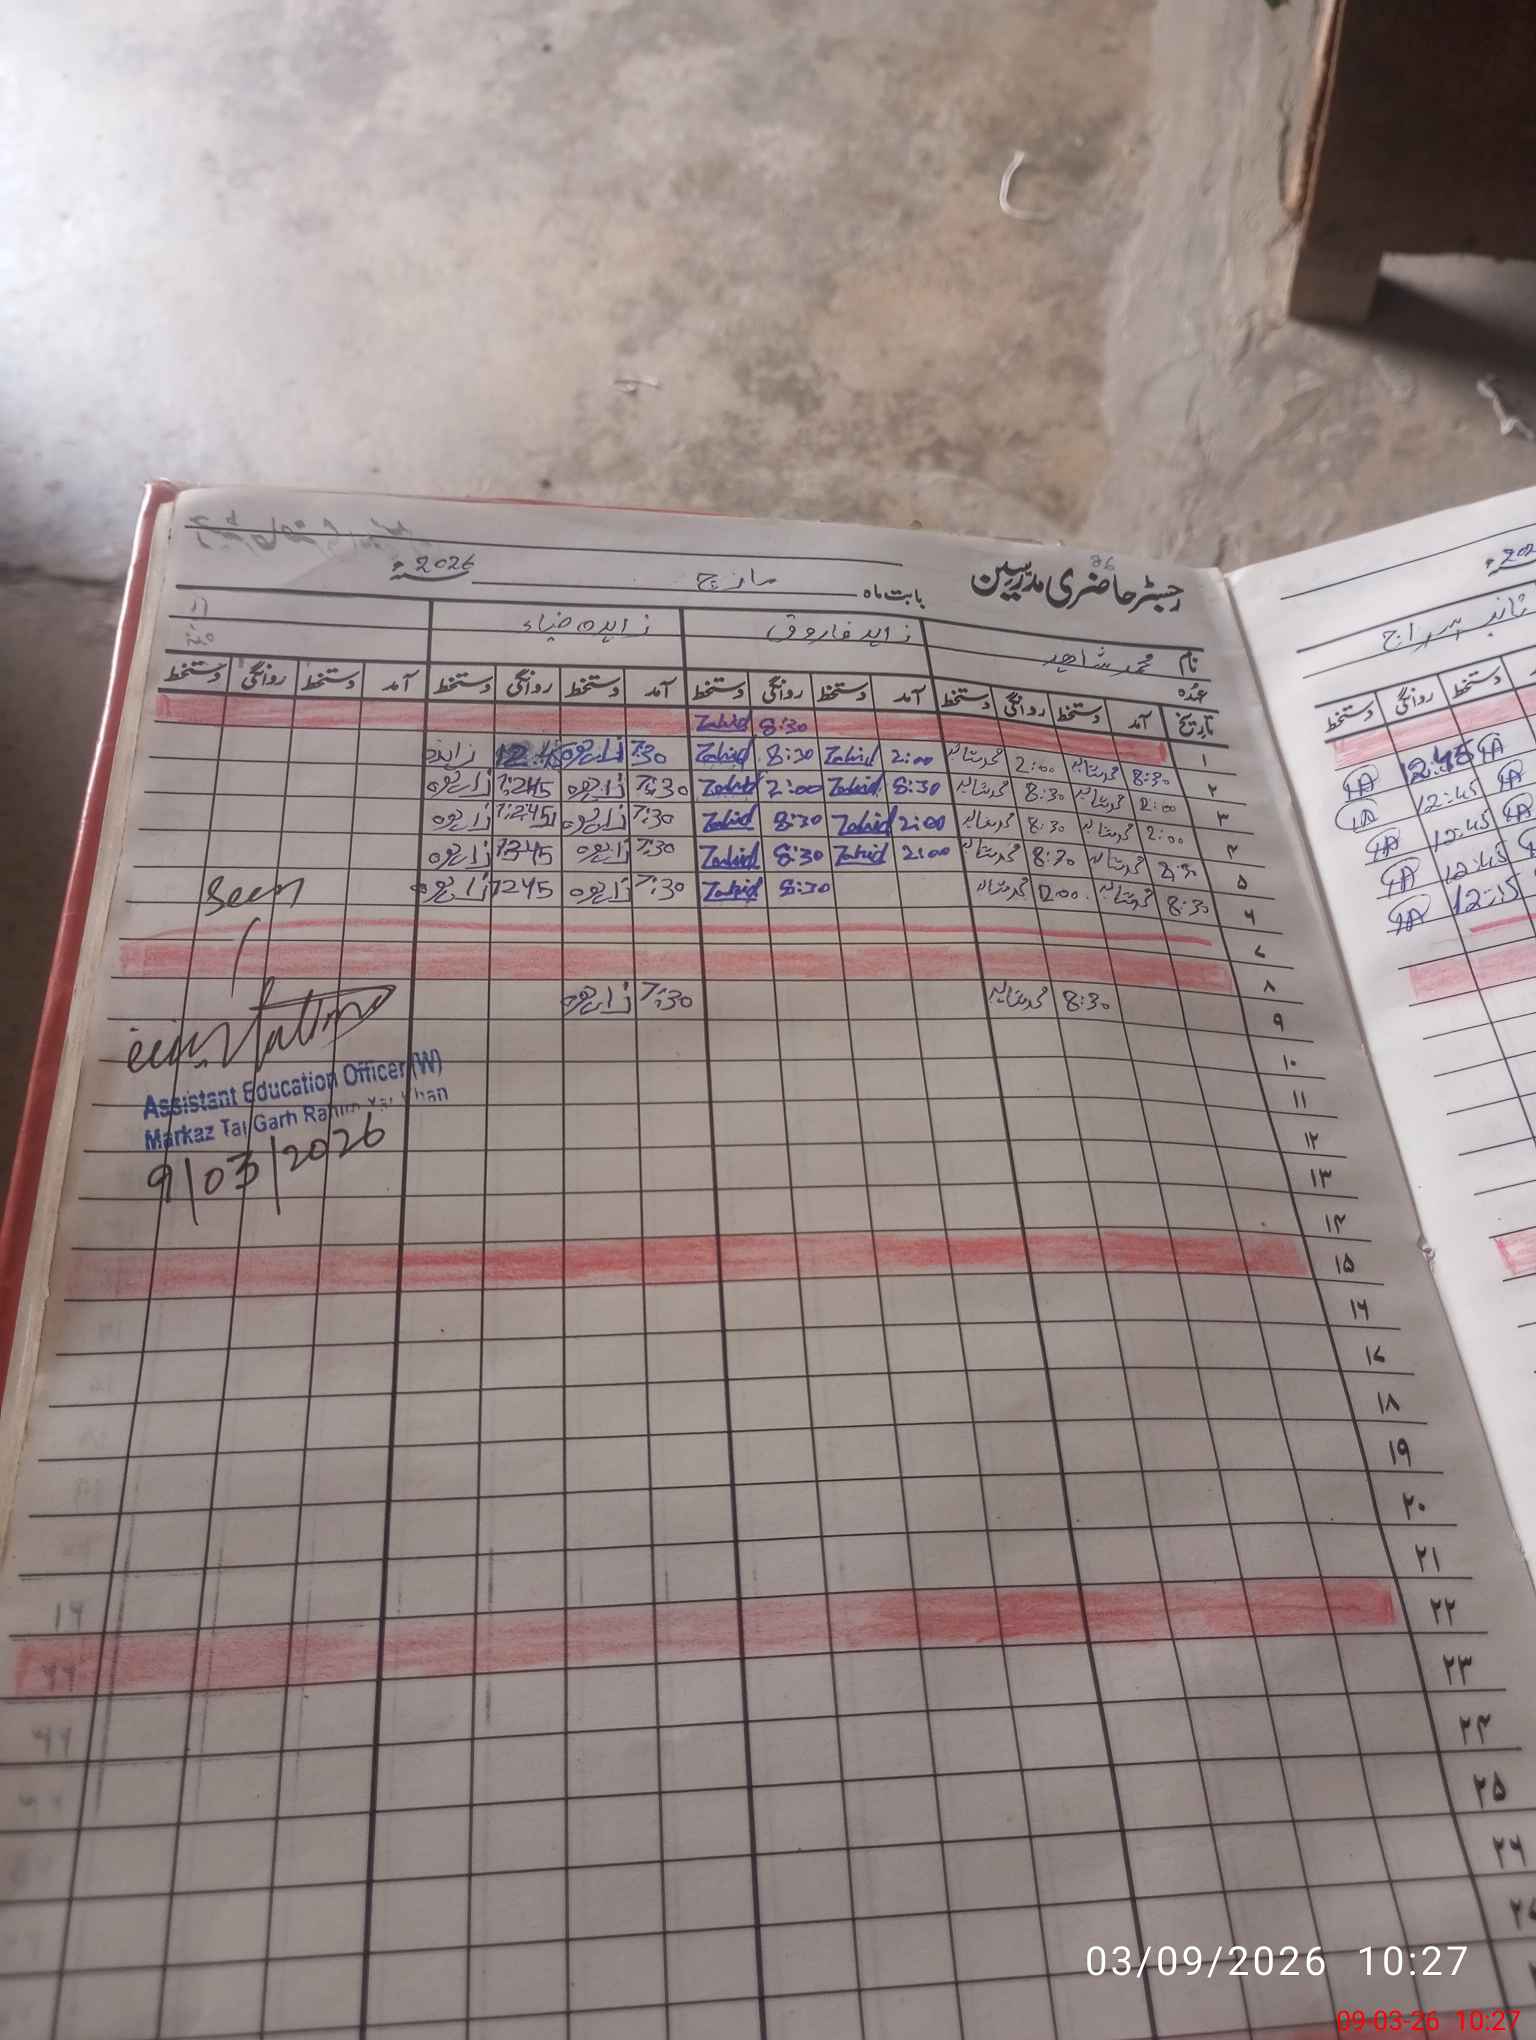 رجسٹر حاضری مدرسین بابت ماہ مارچ 2026ء
نام محمد شاہد زاہد فاروق زاہدہ ضیاء
عہدہ
تاریخ آمد دستخط روانگی دستخط آمد دستخط روانگی دستخط آمد دستخط روانگی دستخط آمد دستخط روانگی دستخط
Zahid 8:30
۱ 8:30 محمد شاہد 2:00 محمد شاہد 2:00 Zahid 8:30 Zahid 7:30 زاہدہ زاہدہ
۲ 2:00 محمد شاہد 8:30 محمد شاہد 8:30 Zahid 2:00 Zahid 7:30 زاہدہ 12:45 زاہدہ
۳ 2:00 محمد شاہد 8:30 محمد شاہد 2:00 Zahid 8:30 Zahid 7:30 زاہدہ 12:45 زاہدہ
۴ 8:30 محمد شاہد 8:30 محمد شاہد 2:00 Zahid 8:30 Zahid 7:30 زاہدہ زاہدہ
۵ 8:30 محمد شاہد 2:00 محمد شاہد 8:30 Zahid 7:30 زاہدہ 1245 زاہدہ
۶
۷
۸
8:30 محمد شاہد 7:30 زاہدہ
۹
۱۰
۱۱
۱۲
۱۳
۱۴
۱۵
۱۶
۱۷
۱۸
۱۹
۲۰
۲۱
۲۲
۲۳
۲۴
۲۵
۲۶
Seen
Assistant Education Officer (W)
Markaz Taj Garh Rahim Yar Khan
9/03/2026
12:45
12:45
12:45
12:45
12:15
03/09/2026 10:27
09-03-26 10:27